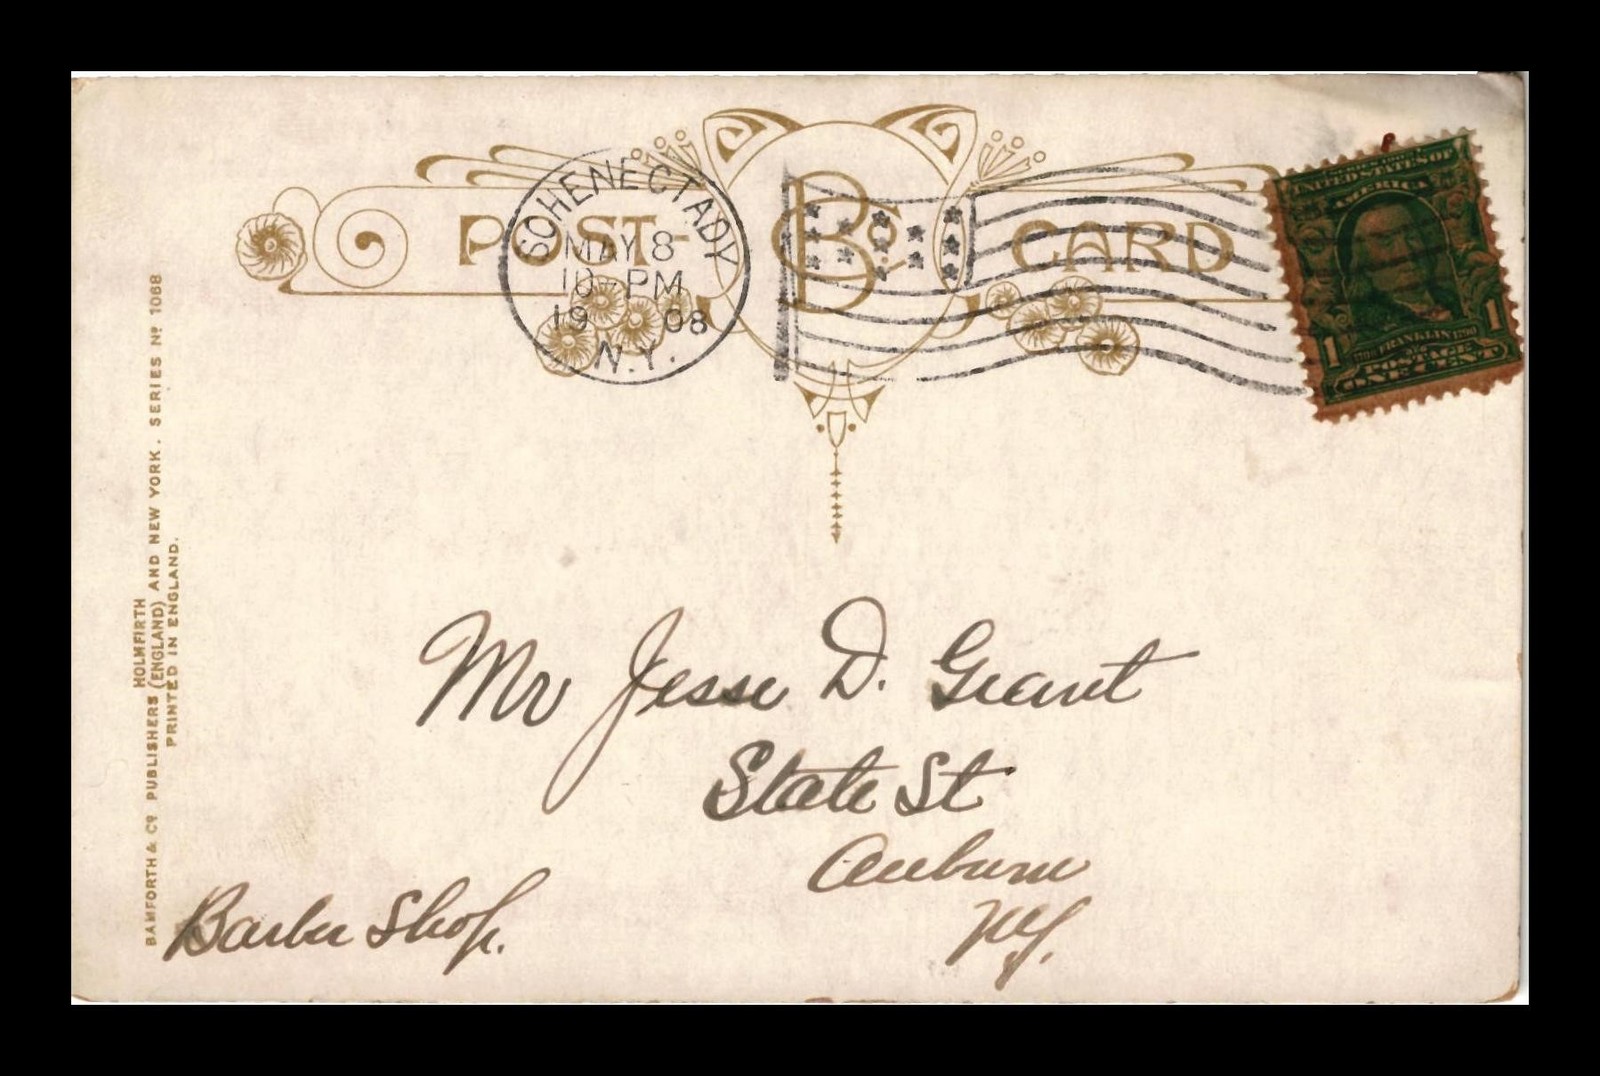 POST-
B&Co.
CARD
SCHENECTADY
MAY 8
10-PM
19 08
N.Y.
SERIES 1902
UNITED STATES OF
AMERICA
1706 FRANKLIN 1790
POSTAGE
1 ONE CENT 1
HOLMFIRTH
BAMFORTH & Cº PUBLISHERS (ENGLAND) AND NEW YORK. SERIES Nº 1068
PRINTED IN ENGLAND.
Mr Jesse D. Grant
State St
Auburn
N.Y.
Barber Shop.